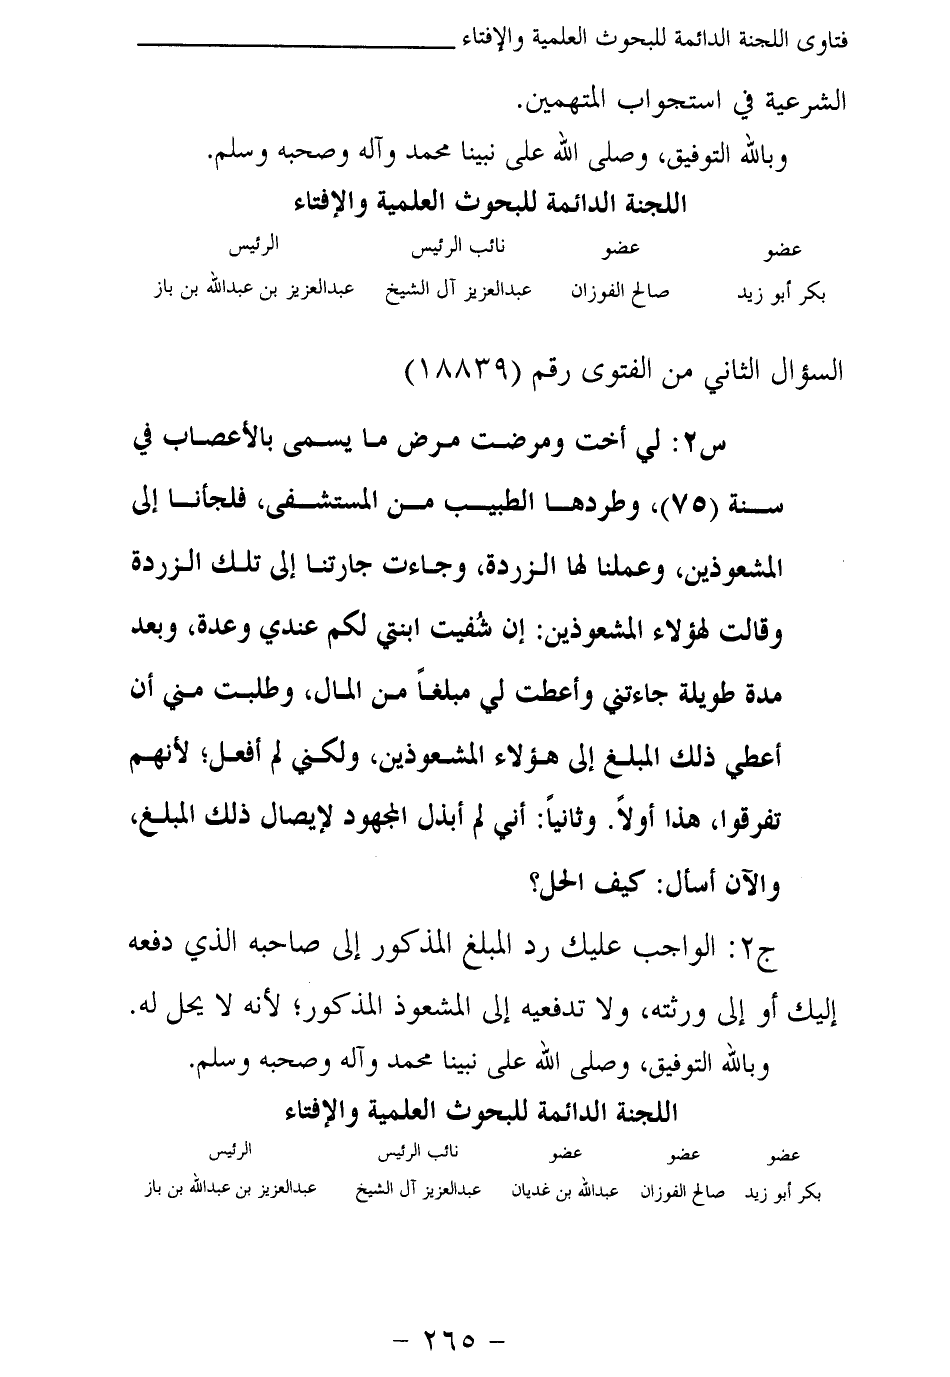 فتاوى اللجنة الدائمة للبحوث العلمية والإفتاء
الشرعية في استجواب المتهمين.
وبالله التوفيق، وصلى الله على نبينا محمد وآله وصحبه وسلم.
اللجنة الدائمة للبحوث العلمية والإفتاء
عضو عضو نائب الرئيس الرئيس
بكر أبو زيد صالح الفوزان عبدالعزيز آل الشيخ عبدالعزيز بن عبدالله بن باز
السؤال الثاني من الفتوى رقم (١٨٨٣٩)
س٢: لي أخت ومرضت مرض ما يسمى بالأعصاب في
سنة (٧٥)، وطردها الطبيب من المستشفى، فلجأنا إلى
المشعوذين، وعملنا لها الزردة، وجاءت جارتنا إلى تلك الزردة
وقالت لهؤلاء المشعوذين: إن شُفيت ابنتي لكم عندي وعدة، وبعد
مدة طويلة جاءتني وأعطت لي مبلغاً من المال، وطلبت مني أن
أعطي ذلك المبلغ إلى هؤلاء المشعوذين، ولكني لم أفعل؛ لأنهم
تفرقوا، هذا أولاً. وثانياً: أني لم أبذل المجهود لإيصال ذلك المبلغ،
والآن أسأل: كيف الحل؟
ج٢: الواجب عليك رد المبلغ المذكور إلى صاحبه الذي دفعه
إليك أو إلى ورثته، ولا تدفعيه إلى المشعوذ المذكور؛ لأنه لا يحل له.
وبالله التوفيق، وصلى الله على نبينا محمد وآله وصحبه وسلم.
اللجنة الدائمة للبحوث العلمية والإفتاء
عضو عضو عضو نائب الرئيس الرئيس
بكر أبو زيد صالح الفوزان عبدالله بن غديان عبدالعزيز آل الشيخ عبدالعزيز بن عبدالله بن باز
- ٢٦٥ -